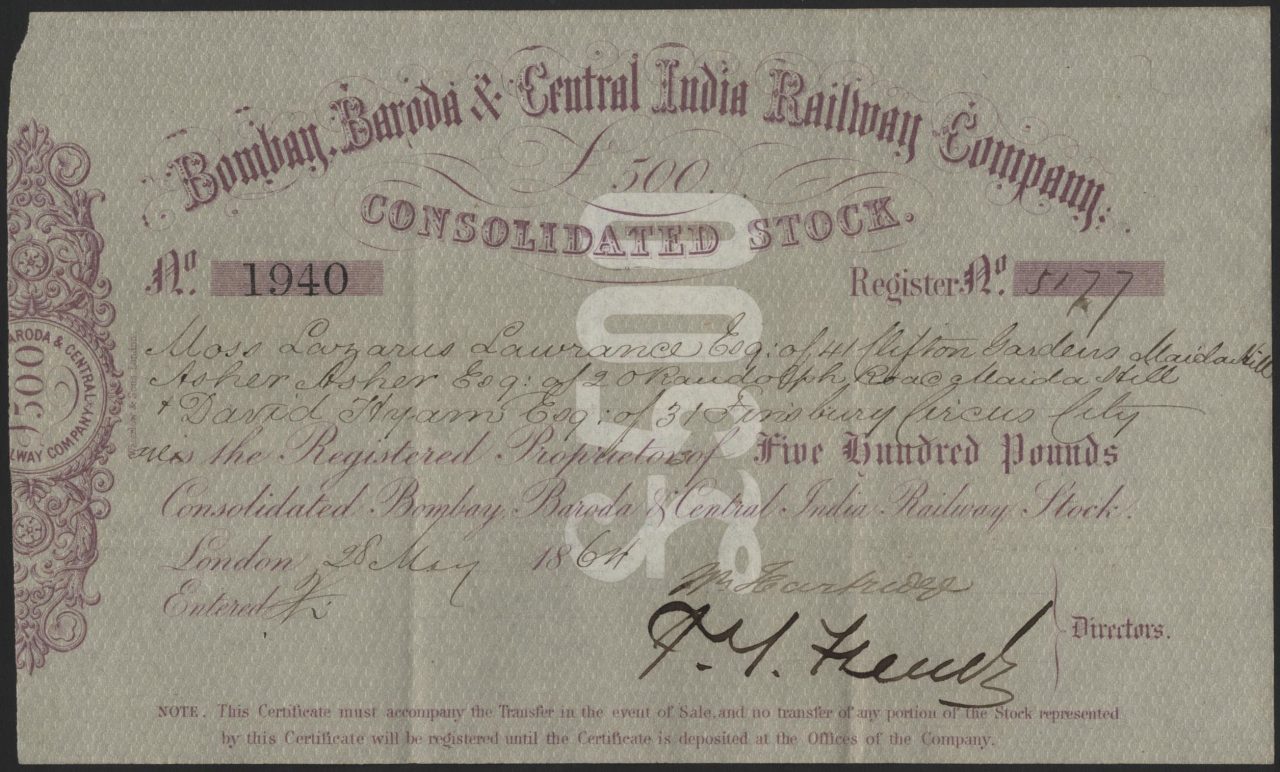 Bombay, Baroda & Central India Railway Company.
£500.
CONSOLIDATED STOCK.
£500
No. 1940
Register No. 5177
Moss Lazarus Lawrance Esq: of 41 Clifton Gardens Maida Hill
Asher Asher Esq: of 20 Randolph Road Maida Hill
& David Hyam Esq: of 31 Finsbury Circus City
is the Registered Proprietors of Five Hundred Pounds
Consolidated Bombay, Baroda & Central India Railway Stock.
London 28 May 1864
Entered
Wm Hartridge
Directors.
NOTE. This Certificate must accompany the Transfer in the event of Sale, and no transfer of any portion of the Stock represented
by this Certificate will be registered until the Certificate is deposited at the Offices of the Company.
BARODA & CENTRAL
£500
RAILWAY COMPANY